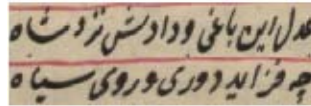 عدل این باغی و دادش نزد شاه
چه فزاید دوری و روی سیاه